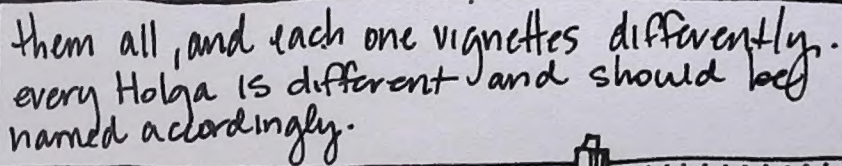 them all, and each one vignettes differently.
every Holga is different and should be
named accordingly.